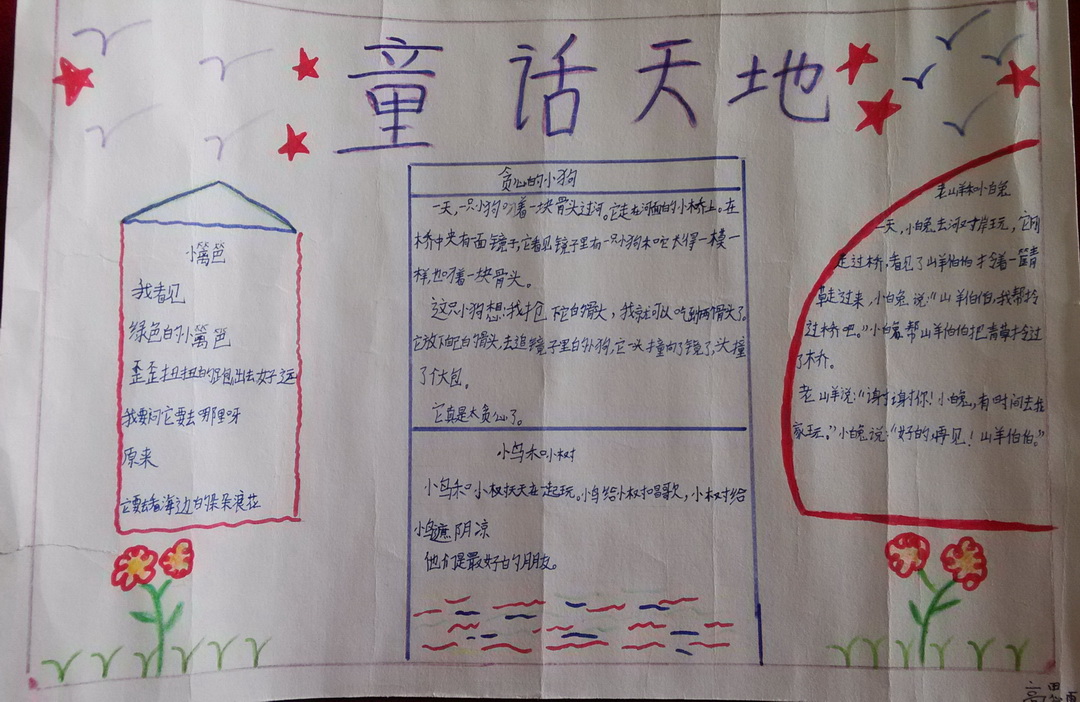 童话天地
小篱笆
我看见
绿色的小篱笆
歪歪扭扭的跑出去好远
我要问它要去哪里呀
原来
它要去看海边的朵朵浪花
贪心的小狗
一天,一只小狗叼着一块骨头过河。它走在河面的小桥上。在
桥中央有面镜子,它看见镜子里有一只小狗和它长得一模一
样,也叼着一块骨头。
这只小狗想:我抢下它的骨头,我就可以吃到两骨头了。
它放下它的骨头,去追镜子里的小狗,它一头撞向了镜子,头撞
了个大包。
它真是太贪心了。
小鸟和小树
小鸟和小树天天在一起玩。小鸟给小树唱歌,小树给
小鸟遮阴凉
他们是最好的朋友。
老山羊和小白兔
一天,小白兔去河对岸玩,它刚
走过桥,看见了山羊伯伯拎着一篮青
草走过来,小白兔说:“山羊伯伯,我帮拎
过桥吧。”小白兔帮山羊伯伯把青草拎过
了木桥。
老山羊说:“谢谢你!小白兔,有时间去我
家玩。”小白兔说:“好的,再见!山羊伯伯。”